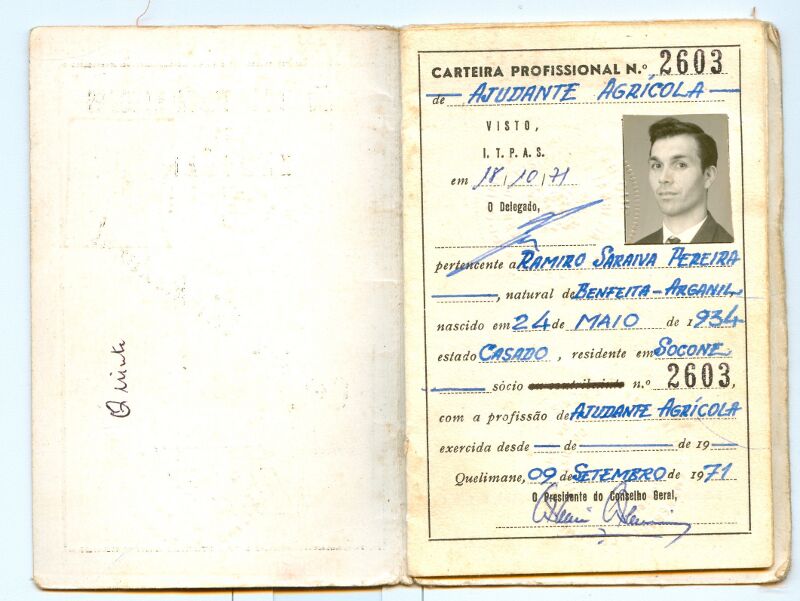 CARTEIRA PROFISSIONAL N.º 2603
de AJUDANTE AGRÍCOLA
VISTO,
I. T. P. A. S.
em 18/10/71
O Delegado,
pertencente a RAMIRO SARAIVA PEREIRA
, natural de BENFEITA - ARGANIL
nascido em 24 de MAIO de 1934
estado CASADO, residente em SOCONE
sócio ou contribuinte n.º 2603,
com a profissão de AJUDANTE AGRÍCOLA
exercida desde — de — de 19 —
Quelimane, 09 de SETEMBRO de 1971
O Presidente do Conselho Geral,